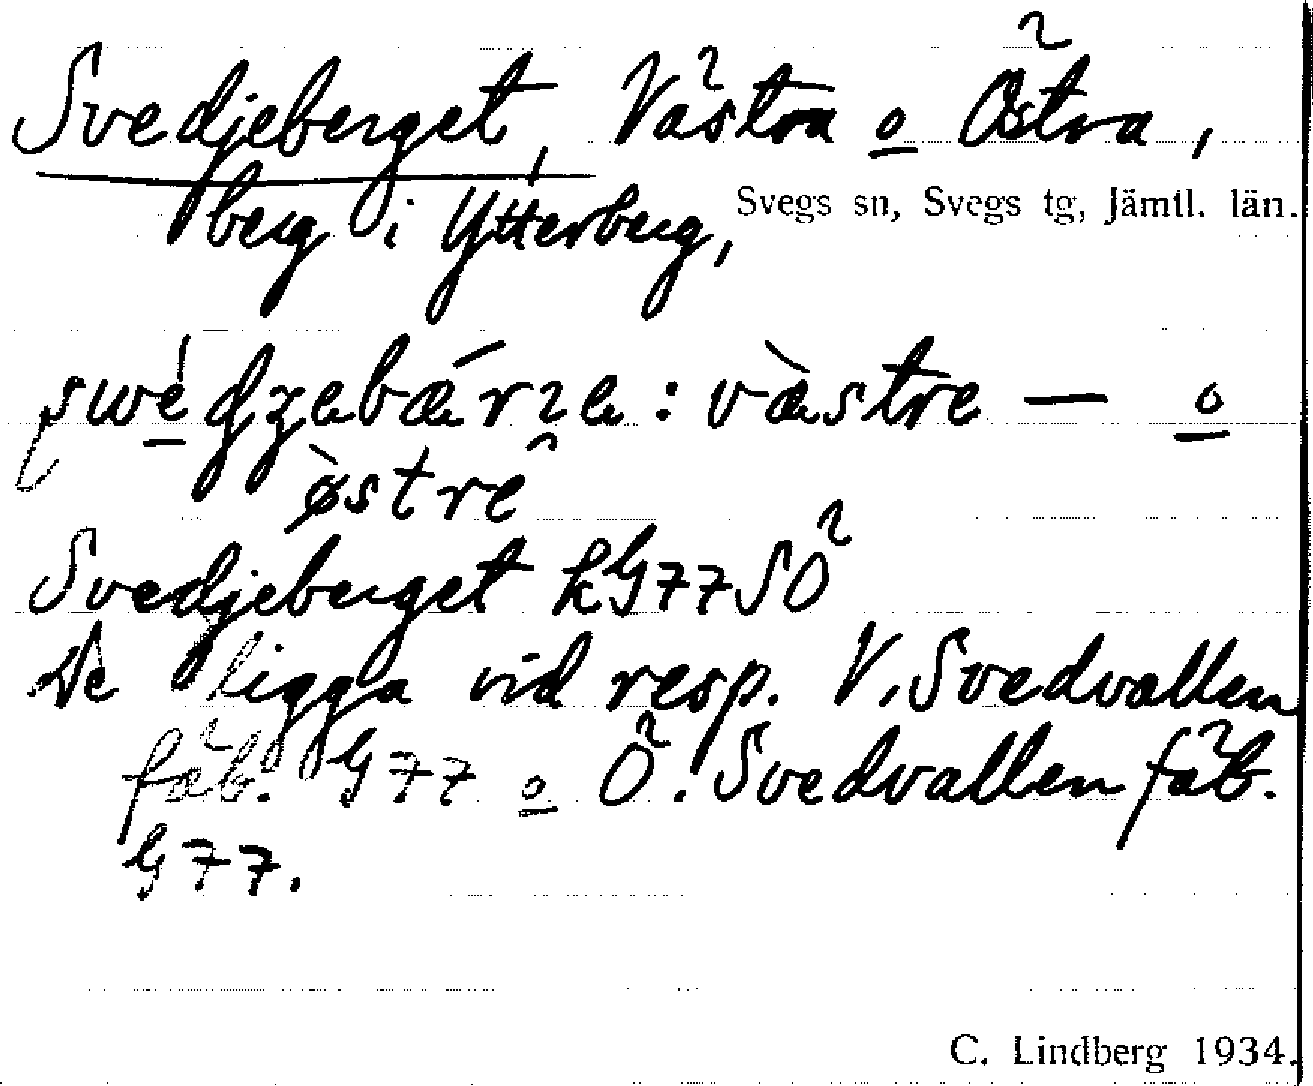 Svedjeberget, Västra o Östra,
berg i Ytterberg, Svegs sn, Svegs tg, Jämtl. län.
västre — o
østre
Svedjeberget kG77SÖ
De ligga vid resp. V. Svedvallen
fäb. G77 o Ö. Svedvallen fäb.
G77.
C. Lindberg 1934.